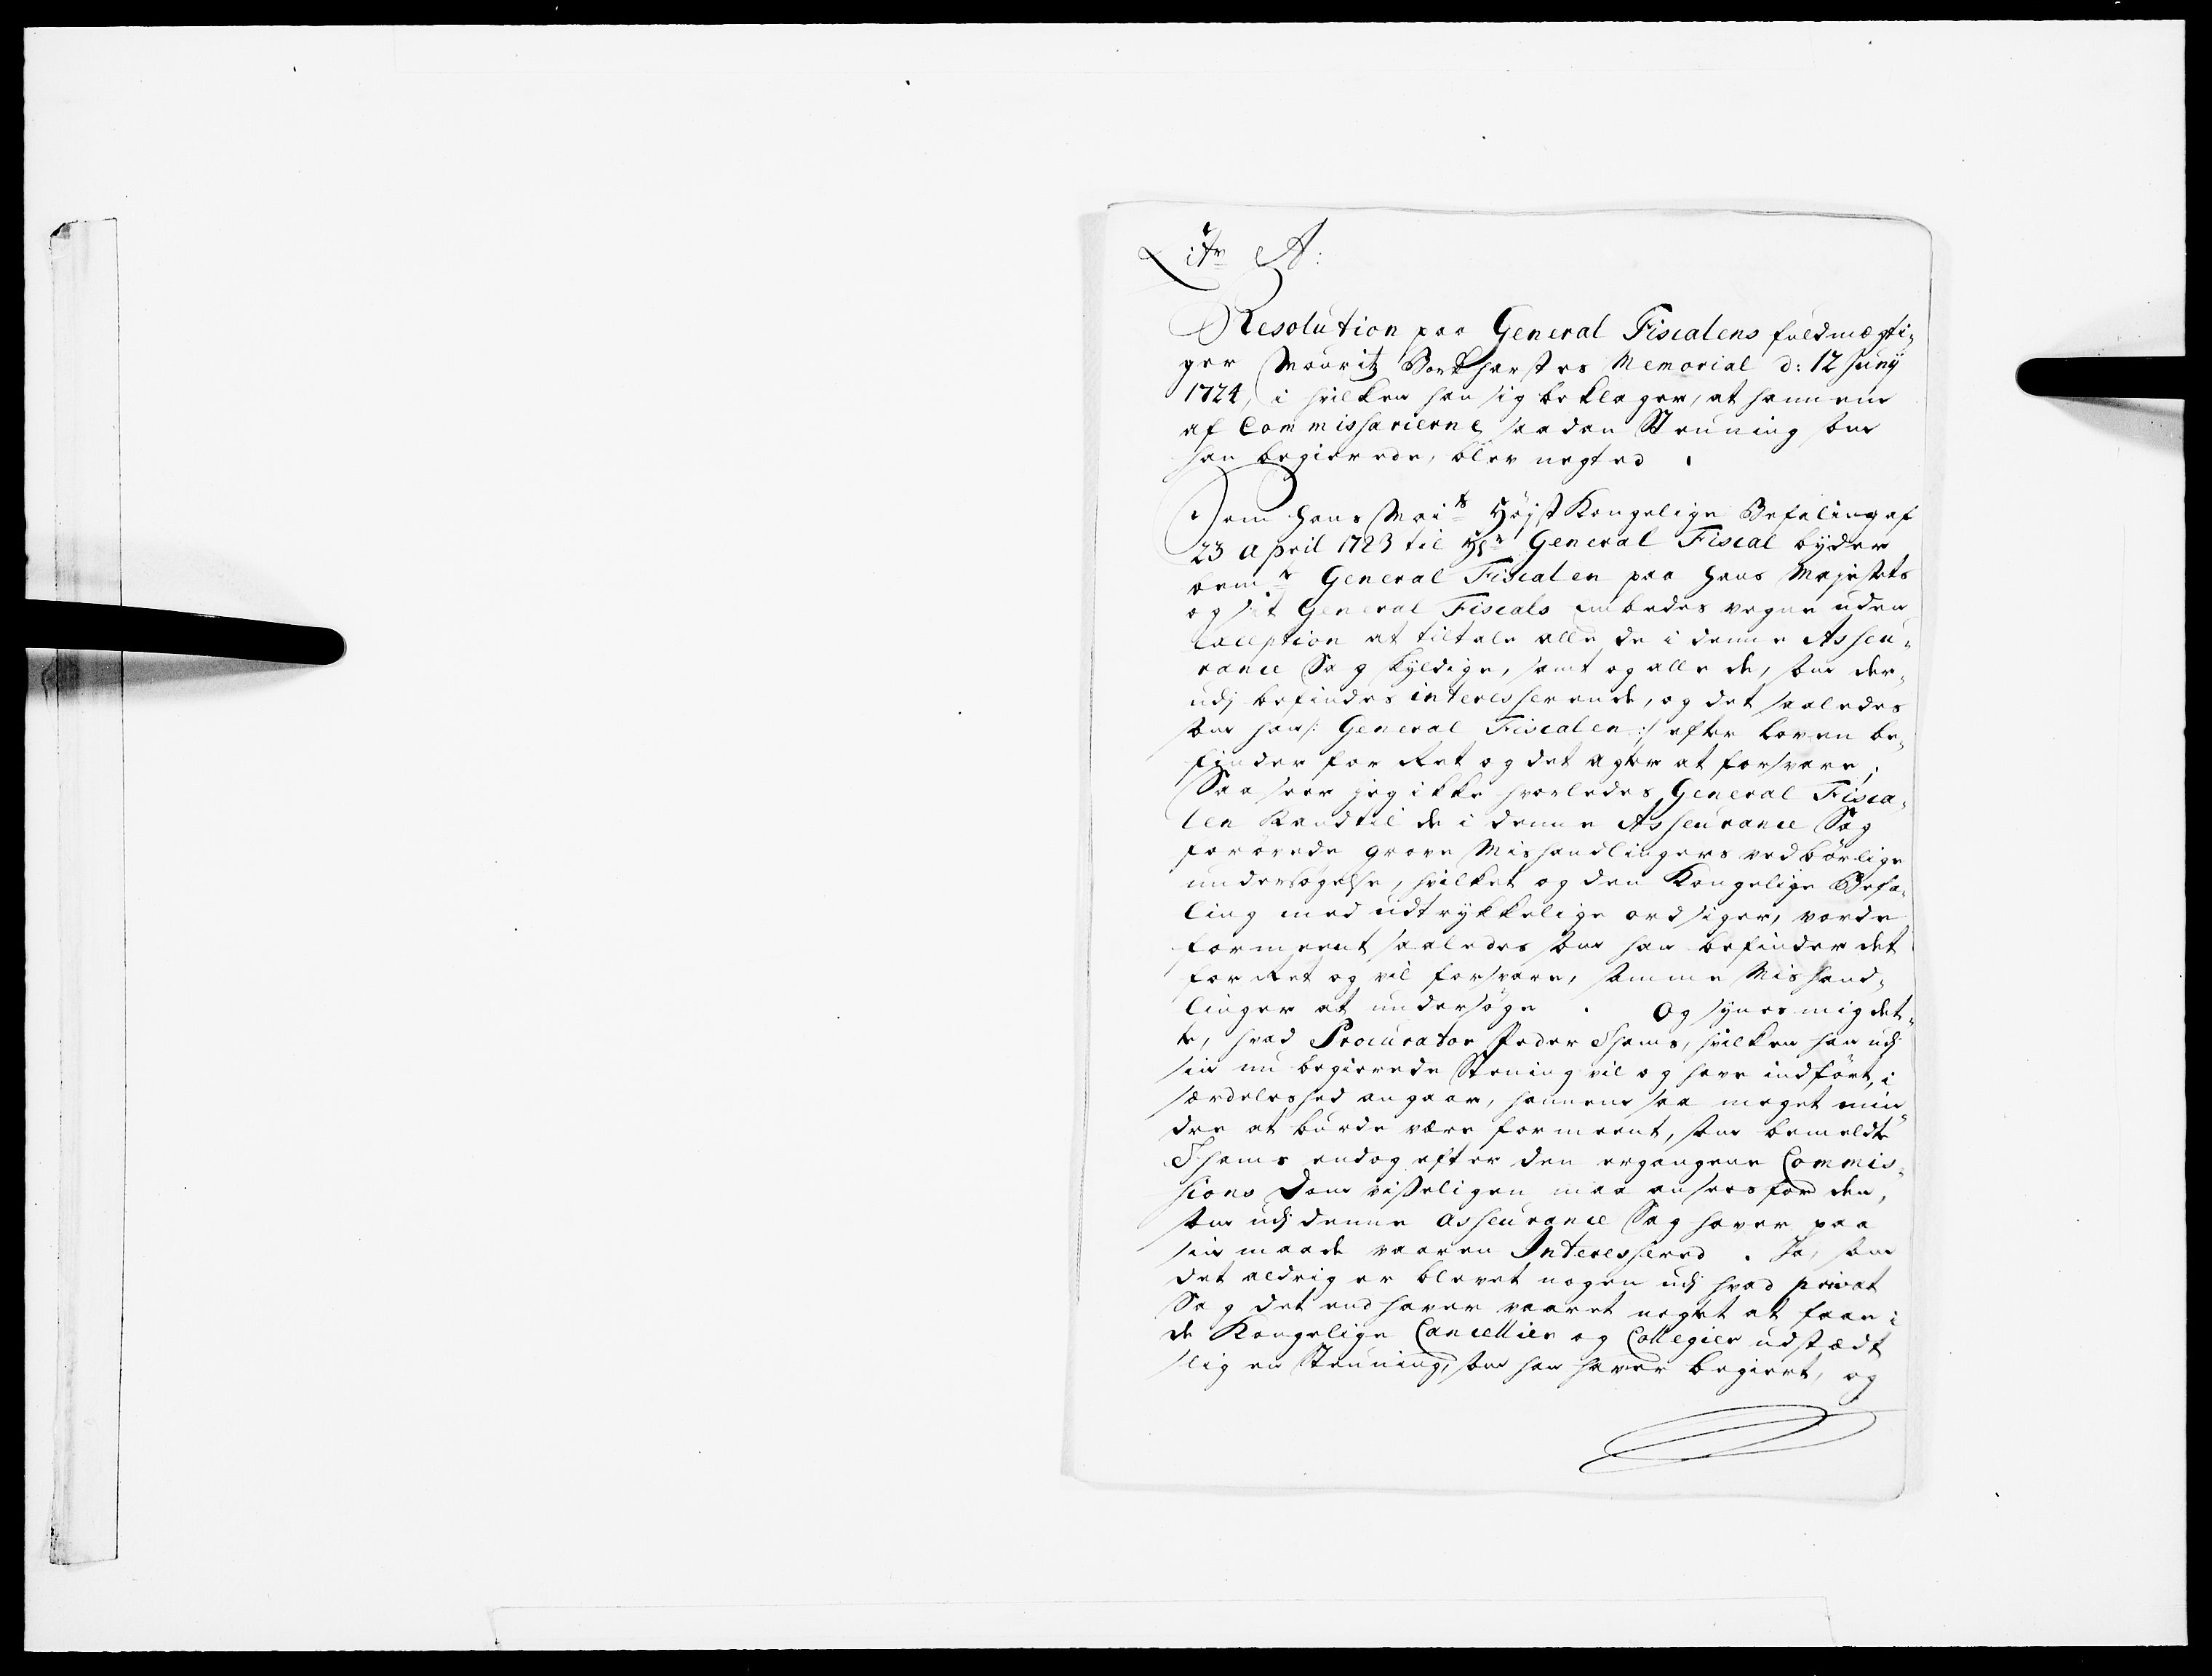 Litr A:
Resolution paa General Fiscalens fuldmægti¬
ger Mouritz Borkhorstes Memorial d: 12 Junij
1724, i hvilken han sig beklager, at hannem
af Commissarierne saadan Steuning som
han begierede, blev negted .
Som Hans Maits Højst Kongelige Befaling af
23 April 1723 til Hr General Fiscal byder
bemte General Fiscalen paa Hans Majestets
og sit General Fiscals Embedes vegne uden
Exception at tiltale alle de i denne Asseu¬
rance Sag skyldige, samt og alle de, som der¬
udj befindes interesserende, og det saaledes
som han /: General Fiscalen :/ efter Loven be¬
finder for Ret og det agter at forsvare;
Saa seer jeg ikke hvorledes General Fisca¬
len kand til de i denne Asseurance Sag
forövede grove Mishandlingers vedbörlige
undersögelse, hvilket og den Kongelige Befa¬
ling med udtrykkelige ord siger, vorde
formeent saaledes som han befinder det
for Ret og vil forsvare, samme Mishand¬
linger at undersöge . Og synes mig det¬
te, hvad Procurator Peder Thams, hvilken han udj
sin nu begierede Stevning vil og have indfört, i
særdeleshed angaar, hannem saa meget min¬
dre at burde være formeent, som bemeldte
Thams endog efter den ergangene Commis¬
sions Dom visseligen maa ansees for den,
som udj denne Asseurance Sag haver paa
sin maade vaaren Interessered . Ja, som
det aldrig er blevet nogen udj hvad privat
Sag det end haver vaaret negtet at faae i
de Kongelige Cancellier og Collegier udstædt
slig en Steuning, som han haver begiert, og